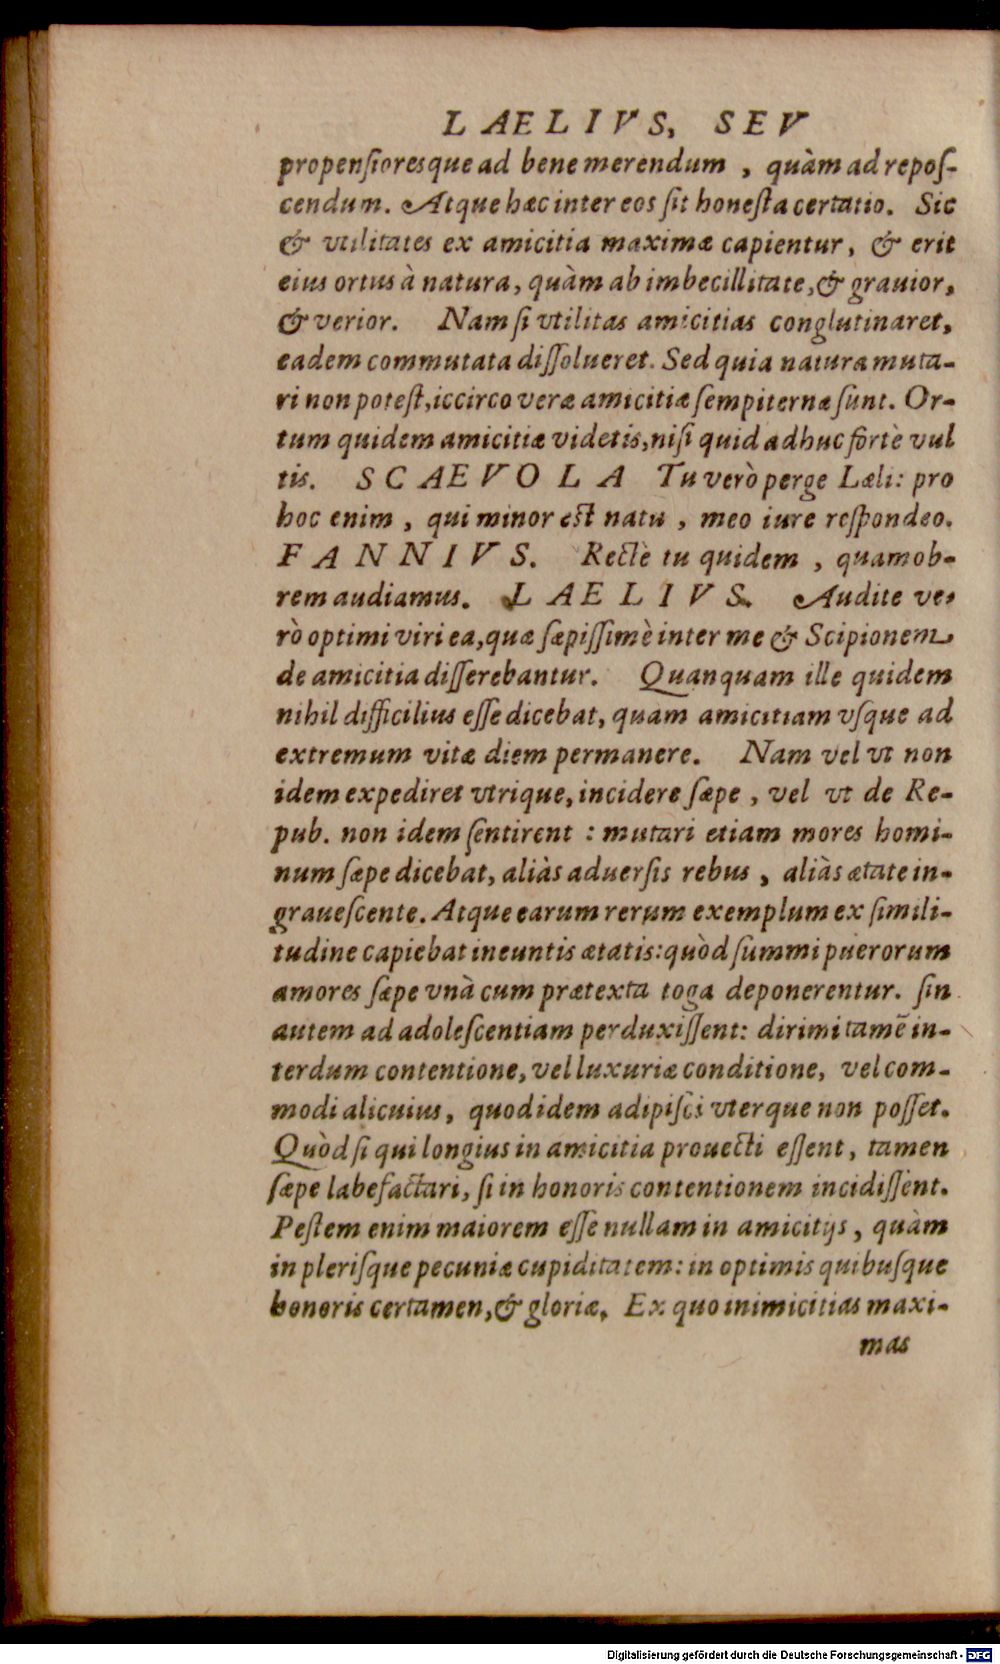 LAELIVS, SEV
propenſioresque ad bene merendum, quàm ad repoſ-
cendum. Atque hæc inter eos ſit honeſta certatio. Sic
& vtilitates ex amicitia maximæ capientur, & erit
eius ortus à natura, quàm ab imbecillitate, & grauior,
& verior. Nam ſi vtilitas amicitias conglutinaret,
eadem commutata diſſolueret. Sed quia natura muta-
ri non poteſt, iccirco veræ amicitiæ ſempiternæ ſunt. Or-
tum quidem amicitiæ videtis, niſi quid adhuc fortè vul
tis. SCAEVOLA Tu verò perge Læli: pro
hoc enim, qui minor est natu, meo iure reſpondeo.
FANNIVS. Rectè tu quidem, quamob-
rem audiamus. LAELIVS. Audite ve-
rò optimi viri ea, quæ ſæpiſſimè inter me & Scipionem
de amicitia diſſerebantur. Quanquam ille quidem
nihil difficilius eſſe dicebat, quàm amicitiam vſque ad
extremum vitæ diem permanere. Nam vel vt non
idem expediret vtrique, incidere ſæpe, vel vt de Re-
pub. non idem ſentirent: mutari etiam mores homi-
num ſæpe dicebat, aliàs aduerſis rebus, aliàs ætate in-
graueſcente. Atque earum rerum exemplum ex ſimili-
tudine capiebat ineuntis ætatis: quòd ſummi puerorum
amores ſæpe vnà cum prætexta toga deponerentur. ſin
autem ad adoleſcentiam perduxiſſent: dirimi tamẽ in-
terdum contentione, vel luxuriæ conditione, vel com-
modi alicuius, quod idem adipiſci vterque non poſſet.
Quòd ſi qui longius in amicitia prouecti eſſent, tamen
ſæpe labefactari, ſi in honoris contentionem incidiſſent.
Peſtem enim maiorem eſſe nullam in amicitijs, quàm
in pleriſque pecuniæ cupiditatem: in optimis quibuſque
honoris certamen, & gloriæ. Ex quo inimicitias maxi-
mas
Digitalisierung gefördert durch die Deutsche Forschungsgemeinschaft - DFG